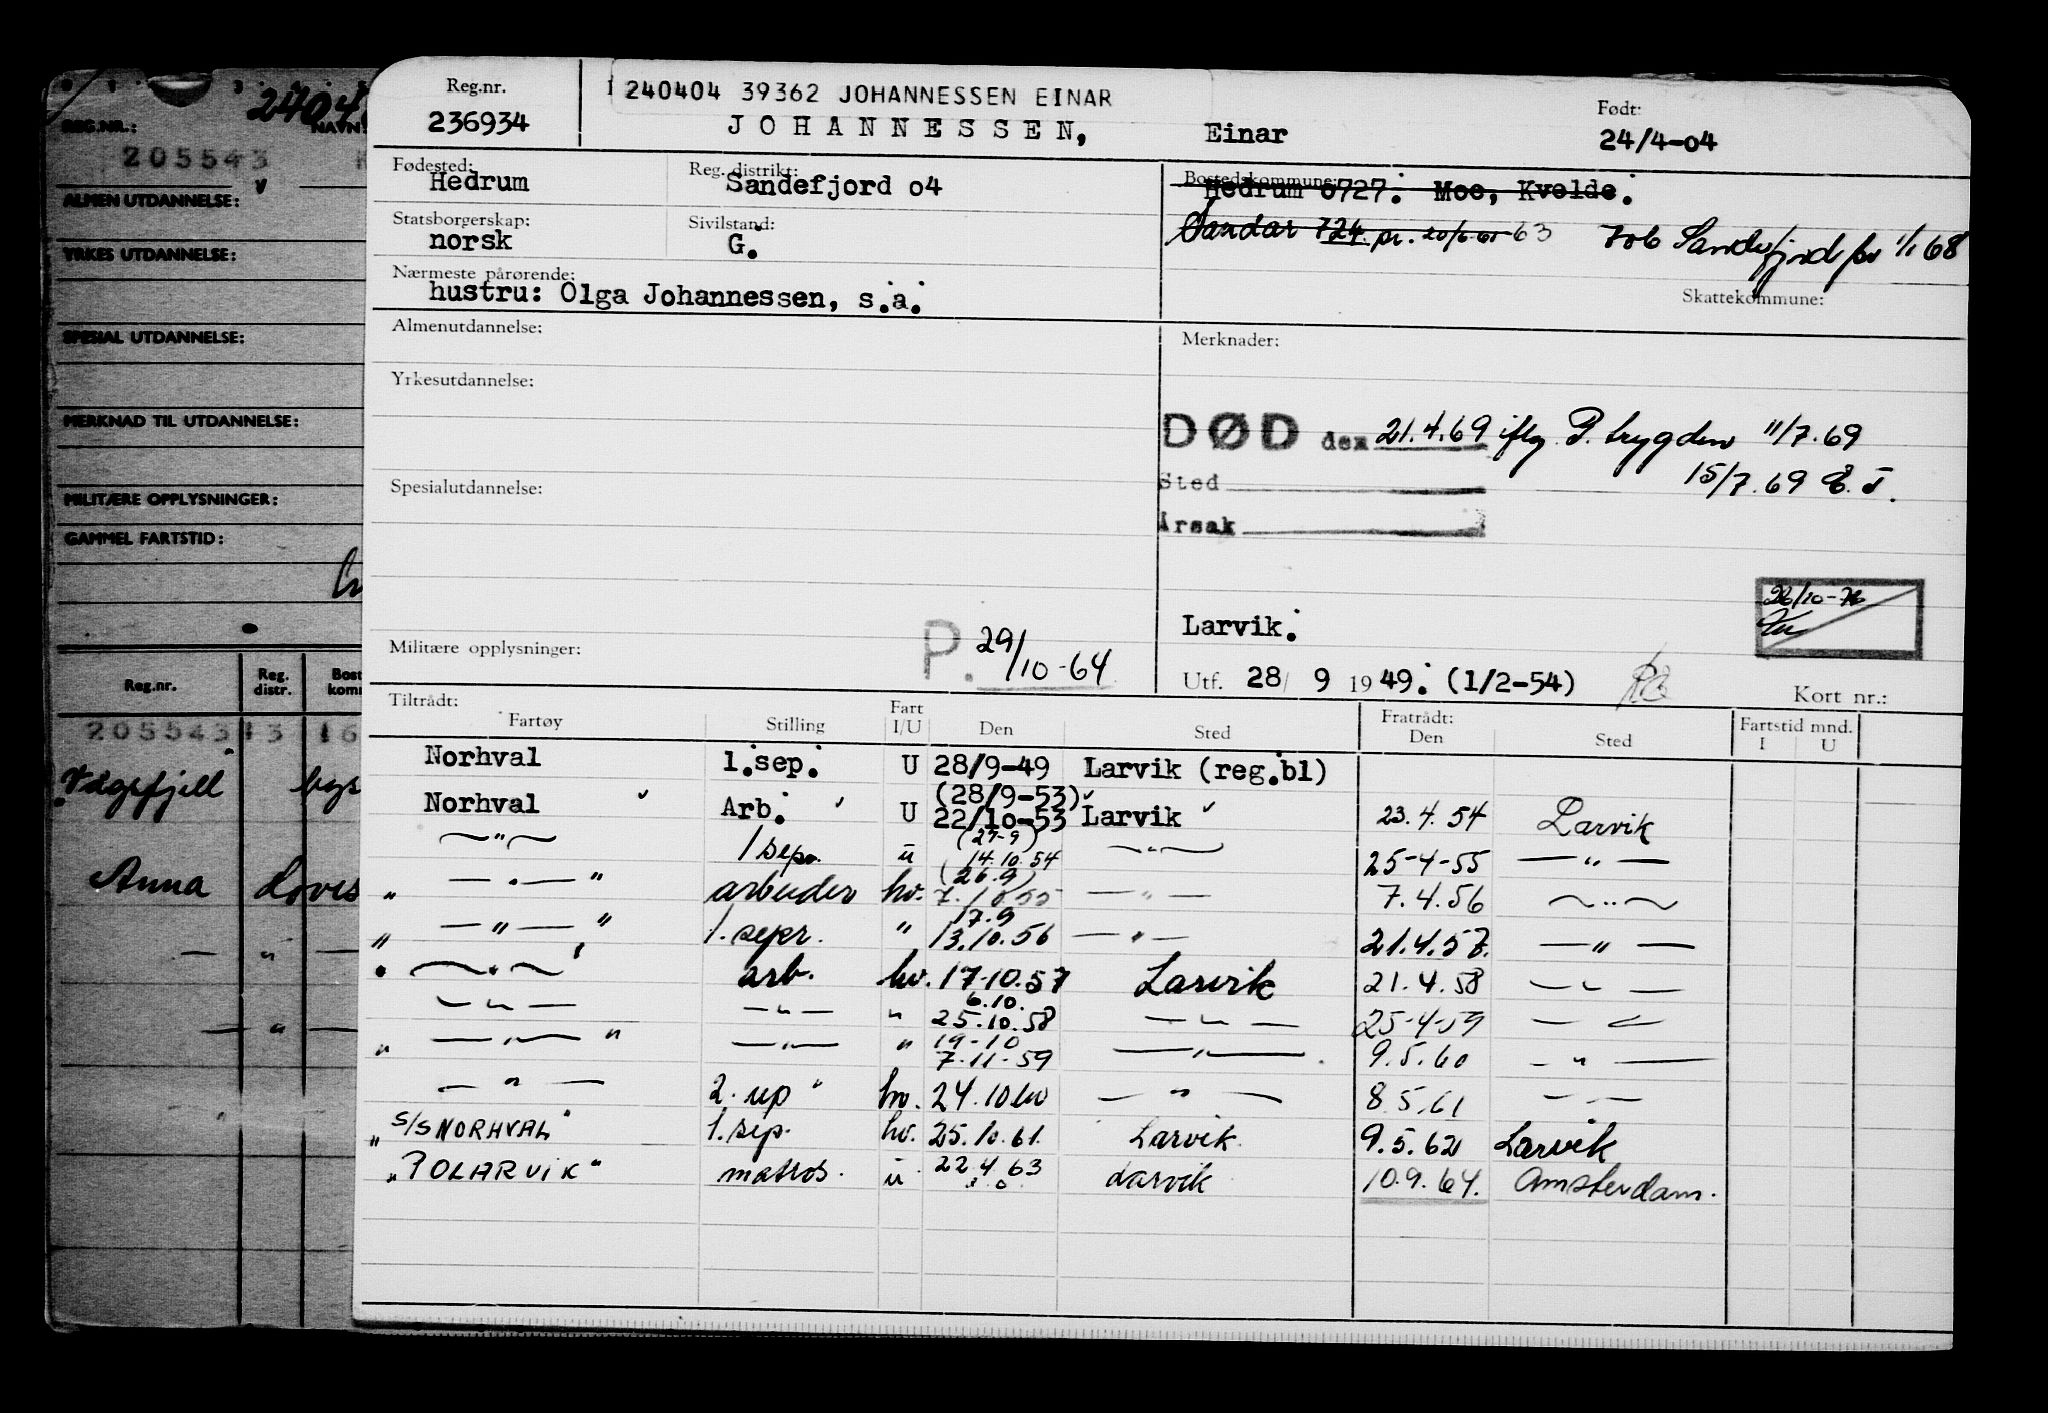 Reg.nr.
236934
240404 39362 JOHANNESSEN EINAR
JOHANNESSEN, Einar
Født:
24/4-04
Fødested:
Hedrum
Reg. distrikt:
Sandefjord o4
Bostedskommune:
Hedrum o727. Moe, Kvelde.
Statsborgerskap:
norsk
Sivilstand:
G.
Sandar 724 pr. 20/6 63
706 Sandefjord fr 1/1 68
Nærmeste pårørende:
hustru: Olga Johannessen, s.a.
Skattekommune:
Almenutdannelse:
Merknader:
Yrkesutdannelse:
DØD den 21.4.69 iflg P. trygden 11/7.69
15/7.69
Sted
Årsak
Spesialutdannelse:
26/10-76
Larvik.
Militære opplysninger:
P. 29/10-64
Utf. 28/ 9 1949. (1/2-54)
Kort nr.:
Tiltrådt:
Fartøy Stilling Fart I/U Den Sted
Fratrådt:
Den Sted
Fartstid mnd.
I U
Norhval 1.sep. U 28/9-49 Larvik (reg.bl)
(28/9-53)
Norhval Arb. U 22/10-53 Larvik 23.4.54 Larvik
(27-9)
— " — 1 sepr. u 14.10.54 — " — 25-4-55 — " —
(26.9)
" — " — " arbeider hv. 7.10.55 — " — 7.4.56 — " —
17.9
" — " — " 1. sepr. " 13.10.56 — " — 21.4.57. — " —
" — " — " arb. hv. 17-10.57 Larvik 21.4.58 — " —
6.10.
— " — — " — " 25.10.58 — " — 25-4-59 — " —
19-10
" — " — " — " — " 7.11-59 — " — 9.5.60 — " —
— " — 2. sep hv. 24.10.60 — " — 8.5.61 — " —
" S/S NORHVAL " 1. sep. hv. 25.10.61. Larvik. 9.5.62 Larvik
" POLARVIK " matros. u 22.4.63 Larvik 10.9.64. Amsterdam.
REG.NR.:
NAVN:
205543
ALMEN UTDANNELSE:
YRKES UTDANNELSE:
SPESIAL UTDANNELSE:
MERKNAD TIL UTDANNELSE:
MILITÆRE OPPLYSNINGER:
GAMMEL FARTSTID:
Reg.nr.
Reg. distr.
205543 13 16
Anna
— " —
— " —